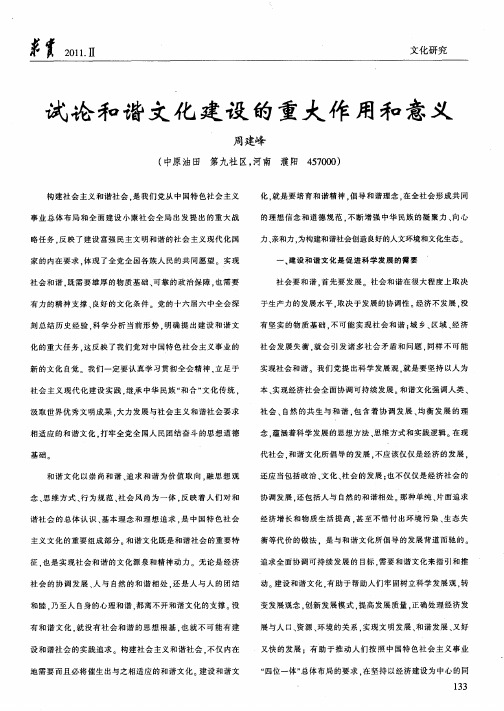 求实 2011.Ⅱ
文化研究
试论和谐文化建设的重大作用和意义
周建峰
(中原油田 第九社区,河南 濮阳 457000)
构建社会主义和谐社会,是我们党从中国特色社会主义
事业总体布局和全面建设小康社会全局出发提出的重大战
略任务,反映了建设富强民主文明和谐的社会主义现代化国
家的内在要求,体现了全党全国各族人民的共同愿望。实现
社会和谐,既需要雄厚的物质基础、可靠的政治保障,也需要
有力的精神支撑、良好的文化条件。党的十六届六中全会深
刻总结历史经验,科学分析当前形势,明确提出建设和谐文
化的重大任务,这反映了我们党对中国特色社会主义事业的
新的文化自觉。我们一定要认真学习贯彻全会精神,立足于
社会主义现代化建设实践,继承中华民族“和合”文化传统,
汲取世界优秀文明成果,大力发展与社会主义和谐社会要求
相适应的和谐文化,打牢全党全国人民团结奋斗的思想道德
基础。
和谐文化以崇尚和谐、追求和谐为价值取向,融思想观
念、思维方式、行为规范、社会风尚为一体,反映着人们对和
谐社会的总体认识、基本理念和理想追求,是中国特色社会
主义文化的重要组成部分。和谐文化既是和谐社会的重要特
征,也是实现社会和谐的文化源泉和精神动力。无论是经济
社会的协调发展、人与自然的和谐相处,还是人与人的团结
和睦,乃至人自身的心理和谐,都离不开和谐文化的支撑。没
有和谐文化,就没有社会和谐的思想根基,也就不可能有建
设和谐社会的实践追求。构建社会主义和谐社会,不仅内在
地需要而且必将催生出与之相适应的和谐文化。建设和谐文
化,就是要培育和谐精神,倡导和谐理念,在全社会形成共同
的理想信念和道德规范,不断增强中华民族的凝聚力、向心
力、亲和力,为构建和谐社会创造良好的人文环境和文化生态。
一、建设和谐文化是促进科学发展的需要
社会要和谐,首先要发展。社会和谐在很大程度上取决
于生产力的发展水平,取决于发展的协调性。经济不发展,没
有坚实的物质基础,不可能实现社会和谐;城乡、区域、经济
社会发展失衡,就会引发诸多社会矛盾和问题,同样不可能
实现社会和谐。我们党提出科学发展观,就是要坚持以人为
本、实现经济社会全面协调可持续发展。和谐文化强调人类、
社会、自然的共生与和谐,包含着协调发展、均衡发展的理
念,蕴涵着科学发展的思想方法、思维方式和实践逻辑。在现
代社会,和谐文化所倡导的发展,不应该仅仅是经济的发展,
还应当包括政治、文化、社会的发展;也不仅仅是经济社会的
协调发展,还包括人与自然的和谐相处。那种单纯、片面追求
经济增长和物质生活提高,甚至不惜付出环境污染、生态失
衡等代价的做法,是与和谐文化所倡导的发展背道而驰的。
追求全面协调可持续发展的目标,需要和谐文化来指引和推
动。建设和谐文化,有助于帮助人们牢固树立科学发展观,转
变发展观念,创新发展模式,提高发展质量,正确处理经济发
展与人口、资源、环境的关系,实现文明发展、和谐发展、又好
又快的发展;有助于推动人们按照中国特色社会主义事业
“四位一体”总体布局的要求,在坚持以经济建设为中心的同
133